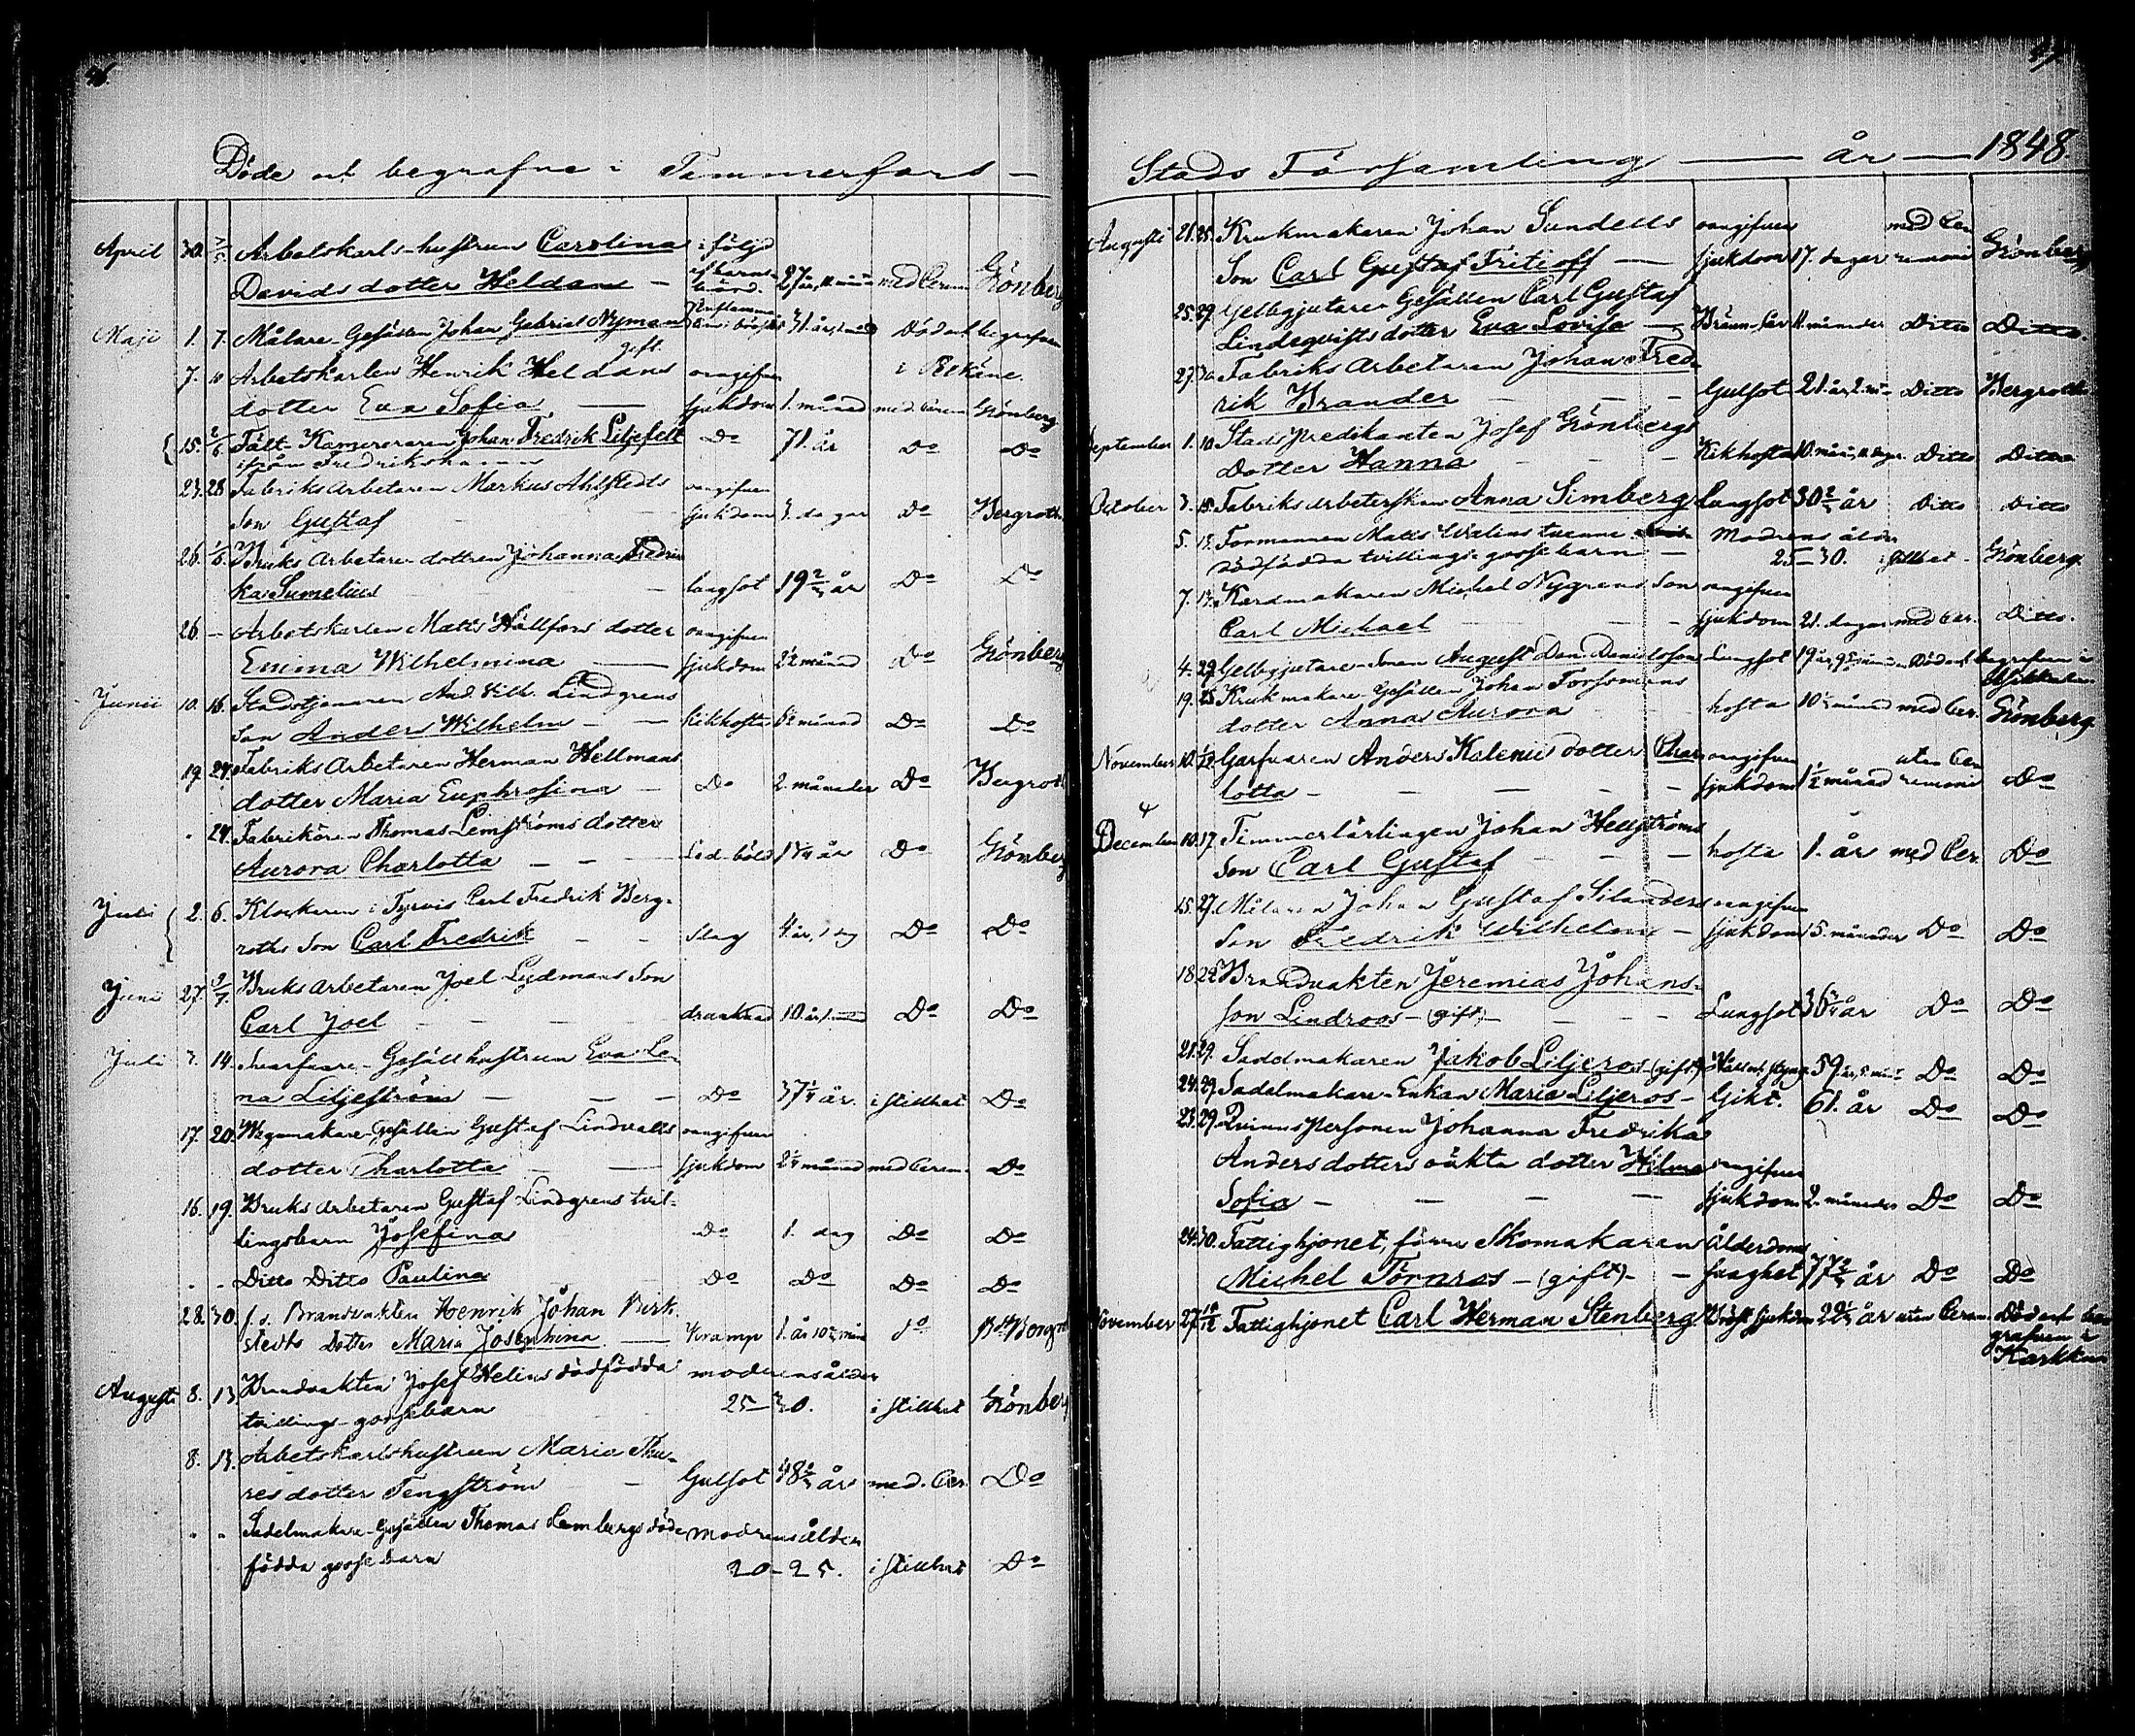 46.
Döde och begrafne i Tammerfors
April 30. 7/5 Arbetskarls-hustrun Carolina i följd
Davidsdotter Heldan af barnsbörd. 27 år, 11 mån med Cerem Grönberg
Maji 1. 7. Målare-Gesällen Johan Gabriel Nyman 31 år, Död och begrafven
gift. i Rekåne.
7. 10 Arbetskarlen Henrik Heldans oangifven
dotter Eva Sofia sjukdom 1. månad med Cerem Grönberg
15. 2/6 Fält-Kamereraren Johan Fredrik Liljefelt Do 71. år Do Do
ifrån Fredrikshamn
23. 28 Fabriks arbetaren Markus Ahlstedts oangifven
Son Gustaf sjukdom 3. dagar Do Bergroth
26. 1/6 Bruks Arbetare dottren Johanna Fredri-
ka Sumelius lungsot 19 2/3 år Do Do
26 – Arbetskarlen Matts Hällfors dotter oangifven
Emma Wilhelmina sjukdom 2½ månad Do Grönberg
Junii 10. 16. Stadstjenaren And. Vilh. Lindgrens
Son Anders Wilhelm Kikhosta månad Do Do
19. 24. Fabriks Arbetaren Herman Hellmans
dotter Maria Euphrosina Do 2. månader Do Bergroth
. 24. Fabrikören Thomas Lemströms dotter
Aurora Charlotta 1¼ år Do Grönberg
Juli 2. 6. Klockaren i Tyrvis Carl Fredrik Berg-
roths Son Carl Fredrik Slag 4. år, 1 dag Do Do
Junii 27. 2/7 Bruks Arbetaren Joel Lydmans Son
Carl Joel drunknad 10. år, Do Do
Juli 3. 14. Svarfvare-Gesällhustrun Eva Le-
na Liljeström Do 37¼ år. i stillhet Do
17. 20. Wagnmakare-Gesällen Gustaf Lindvalls oangifven
dotter Charlotta sjukdom 2¼ månad med Cerem. Do
16. 19. Bruks Arbetaren Gustaf Lindgrens tvil-
lingsbarn Josefina Do 1. dag Do Do
. . Ditto Ditto Paulina Do Do Do Do
28. 30. f.d. Brandvakten Henrik Johan Birk-
stedts Dotter Maria Josephina Kramp 1. år 10 mån do
Augusti 8. 13 Brandvakten Josef Helins dödfödda modrens ålder
tvillings-gossebarn 25–30. i stillhet Grönberg
8. 13. Arbetskarlshustrun Maria Thu-
res dotter Tengström Gulsot 48 år med. Cer. Do
" " Sadelmakare-Gesällen Thomas Lembergs död- modrens ålder
födda gossebarn 20–25. i stillhet Do
47.
Stads Församling år 1848
Augusti 21. 25. Krukmakaren Johan Sundells oangifven med Ce-
Son Carl Gustaf Fritioff sjukdom 17. dagar remoni Grönberg
25. 29. Gelbgjutare-Gesällen Carl Gustaf
Lindeqvists dotter Eva Lovisa 11. månader Ditto Ditto.
27. 30 Fabriks Arbetaren Johan Fred-
rik Brander Gulsot 21. år, 2. mån Ditto Bergroth
September 1. 10. Stads predikanten Josef Grönbergs
Dotter Hanna Kikhosta 10. mån, 11. dagar. Ditto Ditto
October 3. 15. Fabriks arbeterskan Anna Simberg Lungsot 30 år Ditto Ditto
5. 15. Formannen Matts Walins tvenne Modrens ålder
dödfödda tvillings-gossebarn 25–30. i stillhet Grönberg.
7. 13. Kardmakaren Michel Nygrens Son oangifven
Carl Michael sjukdom 21. dagar med Cer. Ditto.
4. 29. Gelbgjutare-Sonen August Dan. Danielsson Lungsot 19 år, månader Död och begrafven i
19. 25 Krukmakare-Gesällen Johan Forsmans
dotter Anna Aurora hosta 10½ månad med Cer. Grönberg.
November 10. 12. Garfvaren Anders Kalenii dotter Char- oangifven utan Ce-
lotta sjukdom 1½ månad remoni Do
December 10. 17. Timmerlärlingen Johan Hellströms
Son Carl Gustaf hosta 1. år med Cer. Do
15. 27. Målaren Johan Gustaf Silanders oangifven
Son Fredrik Wilhelm sjukdom 5. månader Do Do
18. 22. Brandvakten Jeremias Johans-
son Lindroos – (gift) Lungsot 36 år Do Do
21. 29. Sadelmakaren Jakob Liljeros (gift) Håll och styng 59 år, Do Do
24. 29. Sadelmakare-Enkan Maria Liljeros Gikt. 61. år Do Do
23. 29. Qvinnspersonen Johanna Fredrika
Andersdotters oäkta dotter Hilma oangifven
Sofia sjukdom 2. månader Do Do
24. 30. Fattighjonet, förre Skomakaren Ålderdoms
Michel Törnros – (gift) svaghet 77 år Do Do
November 27. 10/12 Fattighjonet Carl Herman Stenberg Bröst sjukdom 22 år utan Cerem. Död och be-
grafven i
Karkku